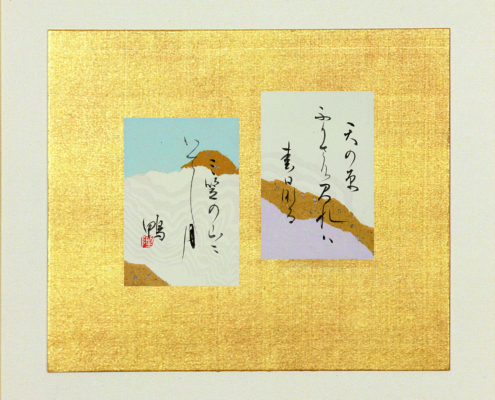 天の原
ふりさけ見れハ
春日なる
三笠の山に
いてし月
鴨